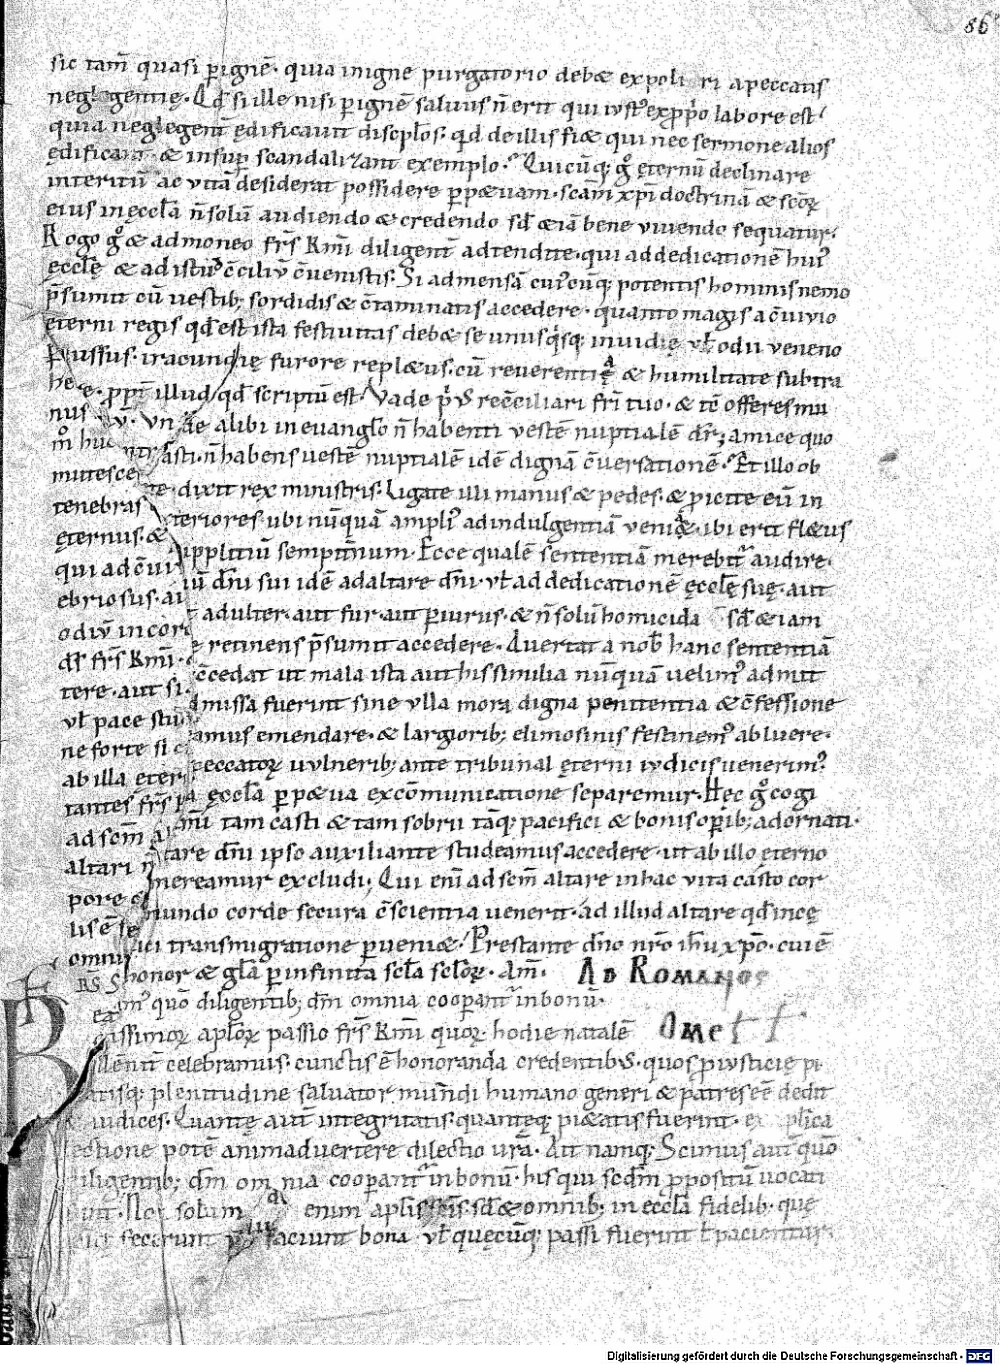 86
sic tam̄ quasi p̱ ignē· quia inigne purgatorio debet expoliari apeccatis
neglegentię· Qd̄ si ille nisi p̱ ignē saluus n̄ erit qui iust᷒ ex pp̱o labore est
quia neglegent̄ ędificauit discipl̄os· qd̄ de illis fiet qui nec sermone alios
ędificant· et insup̱ scandalizant exemplo? Quicūq; g̊ ęternū declinare
interitū ac uitā desiderat possidere p̱petuam· sc̄am xp̄i doctrinā et sc̄orꝝ
eius in ęccl̄a n̄ solū audiendo et credendo sꝫ etiā bene uiuendo sequatur;
Rogo g̊ et admoneo fr̄s km̄i diligent̄ adtendite· qui ad dedicationē hui᷒
ęccl̄ę et ad istud c̄ciliū c̄uenistis· Si ad mensā cui᷒cūq; potentis hominis nemo
p̄sumit cū uestib; sordidis et c̄taminatis accedere· quanto magis a c̄uiuio
ęterni regis qd̄ est ista festiuitas debet se unusq́sq; inuidię ut̄ odii ueneno
p̱cussus· iracundię furore repletus· cū reuerentia et humilitate subtra
here· ppt̄ illud qd̄ scriptū est· Vade p̓ᵘs rec̄ciliari fr̄i tuo· et tc̄ offeres mu
nus tuū· Vnde alibi in euangl̄o n̄ habenti uestē nuptialē dr̄; amice quo
m̊ huc intrasti· n̄ habens uestē nuptialē idē dignā c̄uersationē? Et illo ob
mutesce te· dixit rex ministris· Ligate illi manus et pedes· et p̱icite eū in
tenebras teriores· ubi nūquā ampli᷒ ad indulgentiā ueniet· ibi erit fletus
ęternus· et supplitiū sempit̄num· Ecce qualē sententiā merebit᷑ audire·
qui ad c̄uiuiū dn̄i sui idē ad altare dn̄i· ut̄ ad dedicationē ęccl̄ę suę· aut
ebriosus· aut adulter· aut fur· aut p̱iurus· et n̄ solū homicida sꝫ etiam
odiū in corde retinens p̄sumit accedere· Auertat a nob̄ hanc sententiā
ds̄ fr̄s km̄i· ccedat ut mala ista aut his similia nūquā uelim᷒ admit
tere· aut si dmissa fuerint sine ulla mora digna penitentia et c̄fessione
ut̄ pace stu amus emendare· et largiorib; elimosinis festinem᷒ abluere·
ne forte si c peccatorꝝ uulnerib; ante tribunal ęterni iudicis uenerim᷒
ab illa ęterna ęccl̄a p̱petua excōmunicatione separemur· Hec g̊ cogi
tantes fr̄s km̄i tam casti et tam sobrii tāq; pacifici et bonis op̱ib; adornati·
ad sc̄m altare dn̄i ipso auxiliante studeamus accedere· ut ab illo ęterno
altari n̄ mereamur excludi; Qui eni᷒ ad sc̄m altare in hac uita casto cor
pore et mundo corde secura c̄scientia uenerit· ad illud altare qd̄ in cę
lis ē se lici transmigratione p̱ueniet· Prestante dn̄o nr̄o ih̄u xp̄o· cui ē
omnis honor et gl̄a p̱ infinita sc̄la sc̄lorꝝ· Am̄· AD ROMANOS
RS̄ S m᷒ quō diligentib; dm̄ omnia coop̱ant᷑ in bonū·
Beatissimorꝝ apl̄orꝝ passio fr̄s km̄i quorꝝ hodie natalē Omel
sollēnit̄ celebramus· cunctis ē honoranda credentib;· quos p iusticię pi
etatisq; plenitudine saluator mundi humano generi et patres eē dedit
et iudices· Quantę aut̄ integritatis· quantęq; pietatis fuerint· ex aplica
lectione potē animaduertere dilectio ur̄a· Ait namq; Scimus aut̄ quō
diligentib; dm̄ omnia coop̱ant᷑ in bonū· his qui scdm̄ p̱positū uocati
sunt· Non solum enim apl̄is sc̄is· sꝫ et omnib; in ęccl̄a fidelib; quę
fecerunt faciunt bona ut̄ quęcūq; passi fuerint ut̄ paciuntur·
Digitalisierung gefördert durch die Deutsche Forschungsgemeinschaft - DFG